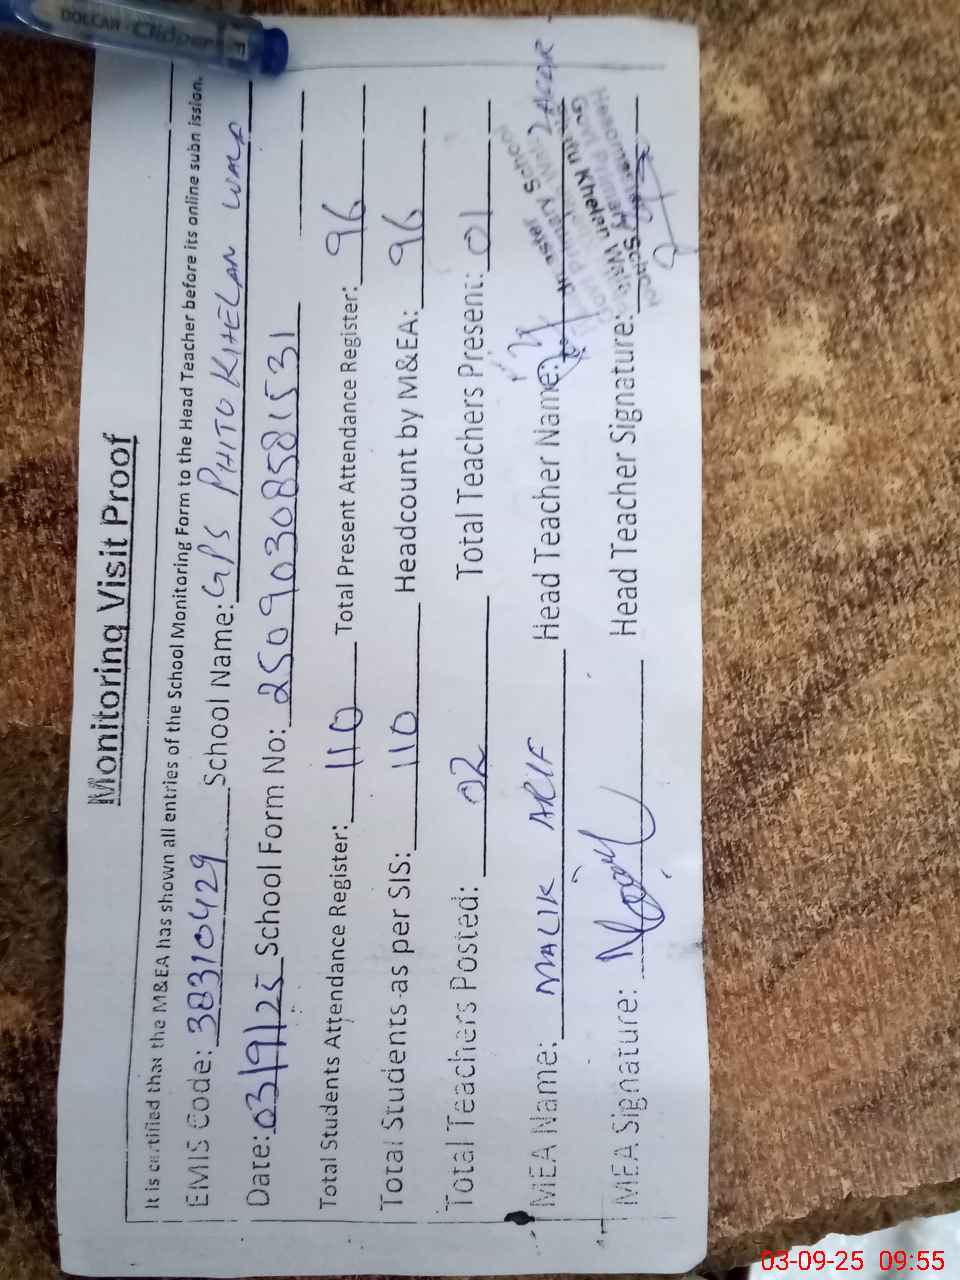 DOLLAR Clipper F
Monitoring Visit Proof
It is certified that the M&EA has shown all entries of the School Monitoring Form to the Head Teacher before its online submission.
EMIS Code: 38310429 School Name: GPS PHITO KHELAN WALA
Date: 03/9/25 School Form No: 250903085815 31
Total Students Attendance Register: 110 Total Present Attendance Register: 96
Total Students as per SIS: 110 Headcount by M&EA: 96
Total Teachers Posted: 02 Total Teachers Present: 01
MEA Name: MALIK ARIF Head Teacher Name:
MEA Signature: Head Teacher Signature:
School
Khelan
03-09-25 09:55